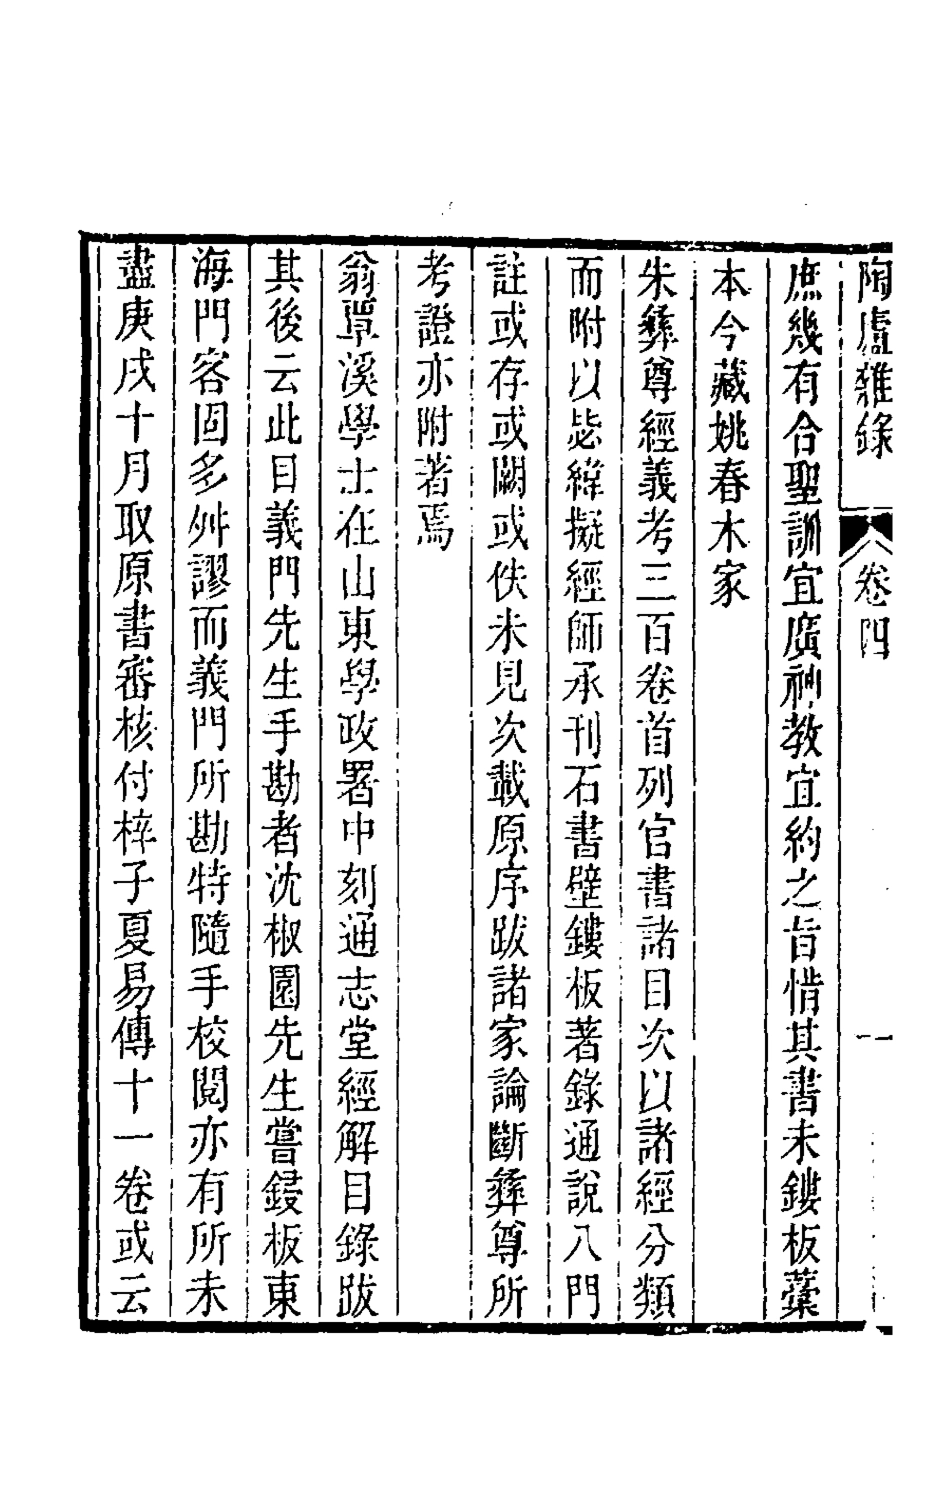 陶廬雜錄 卷四 一
庶幾有合聖訓宜廣神教宜約之旨惜其書未鏤板藁
本今藏姚春木家
朱彝尊經義考三百卷首列官書諸目次以諸經分類
而附以毖緯擬經師承刊石書壁鏤板著錄通說八門
註或存或闕或佚未見次載原序跋諸家論斷彝尊所
考證亦附著焉
翁覃溪學士在山東學政署中刻通志堂經解目錄跋
其後云此目義門先生手勘者沈椒園先生嘗鋟板東
海門客固多舛謬而義門所勘特隨手校閱亦有所未
盡庚戌十月取原書審核付梓子夏易傳十一卷或云